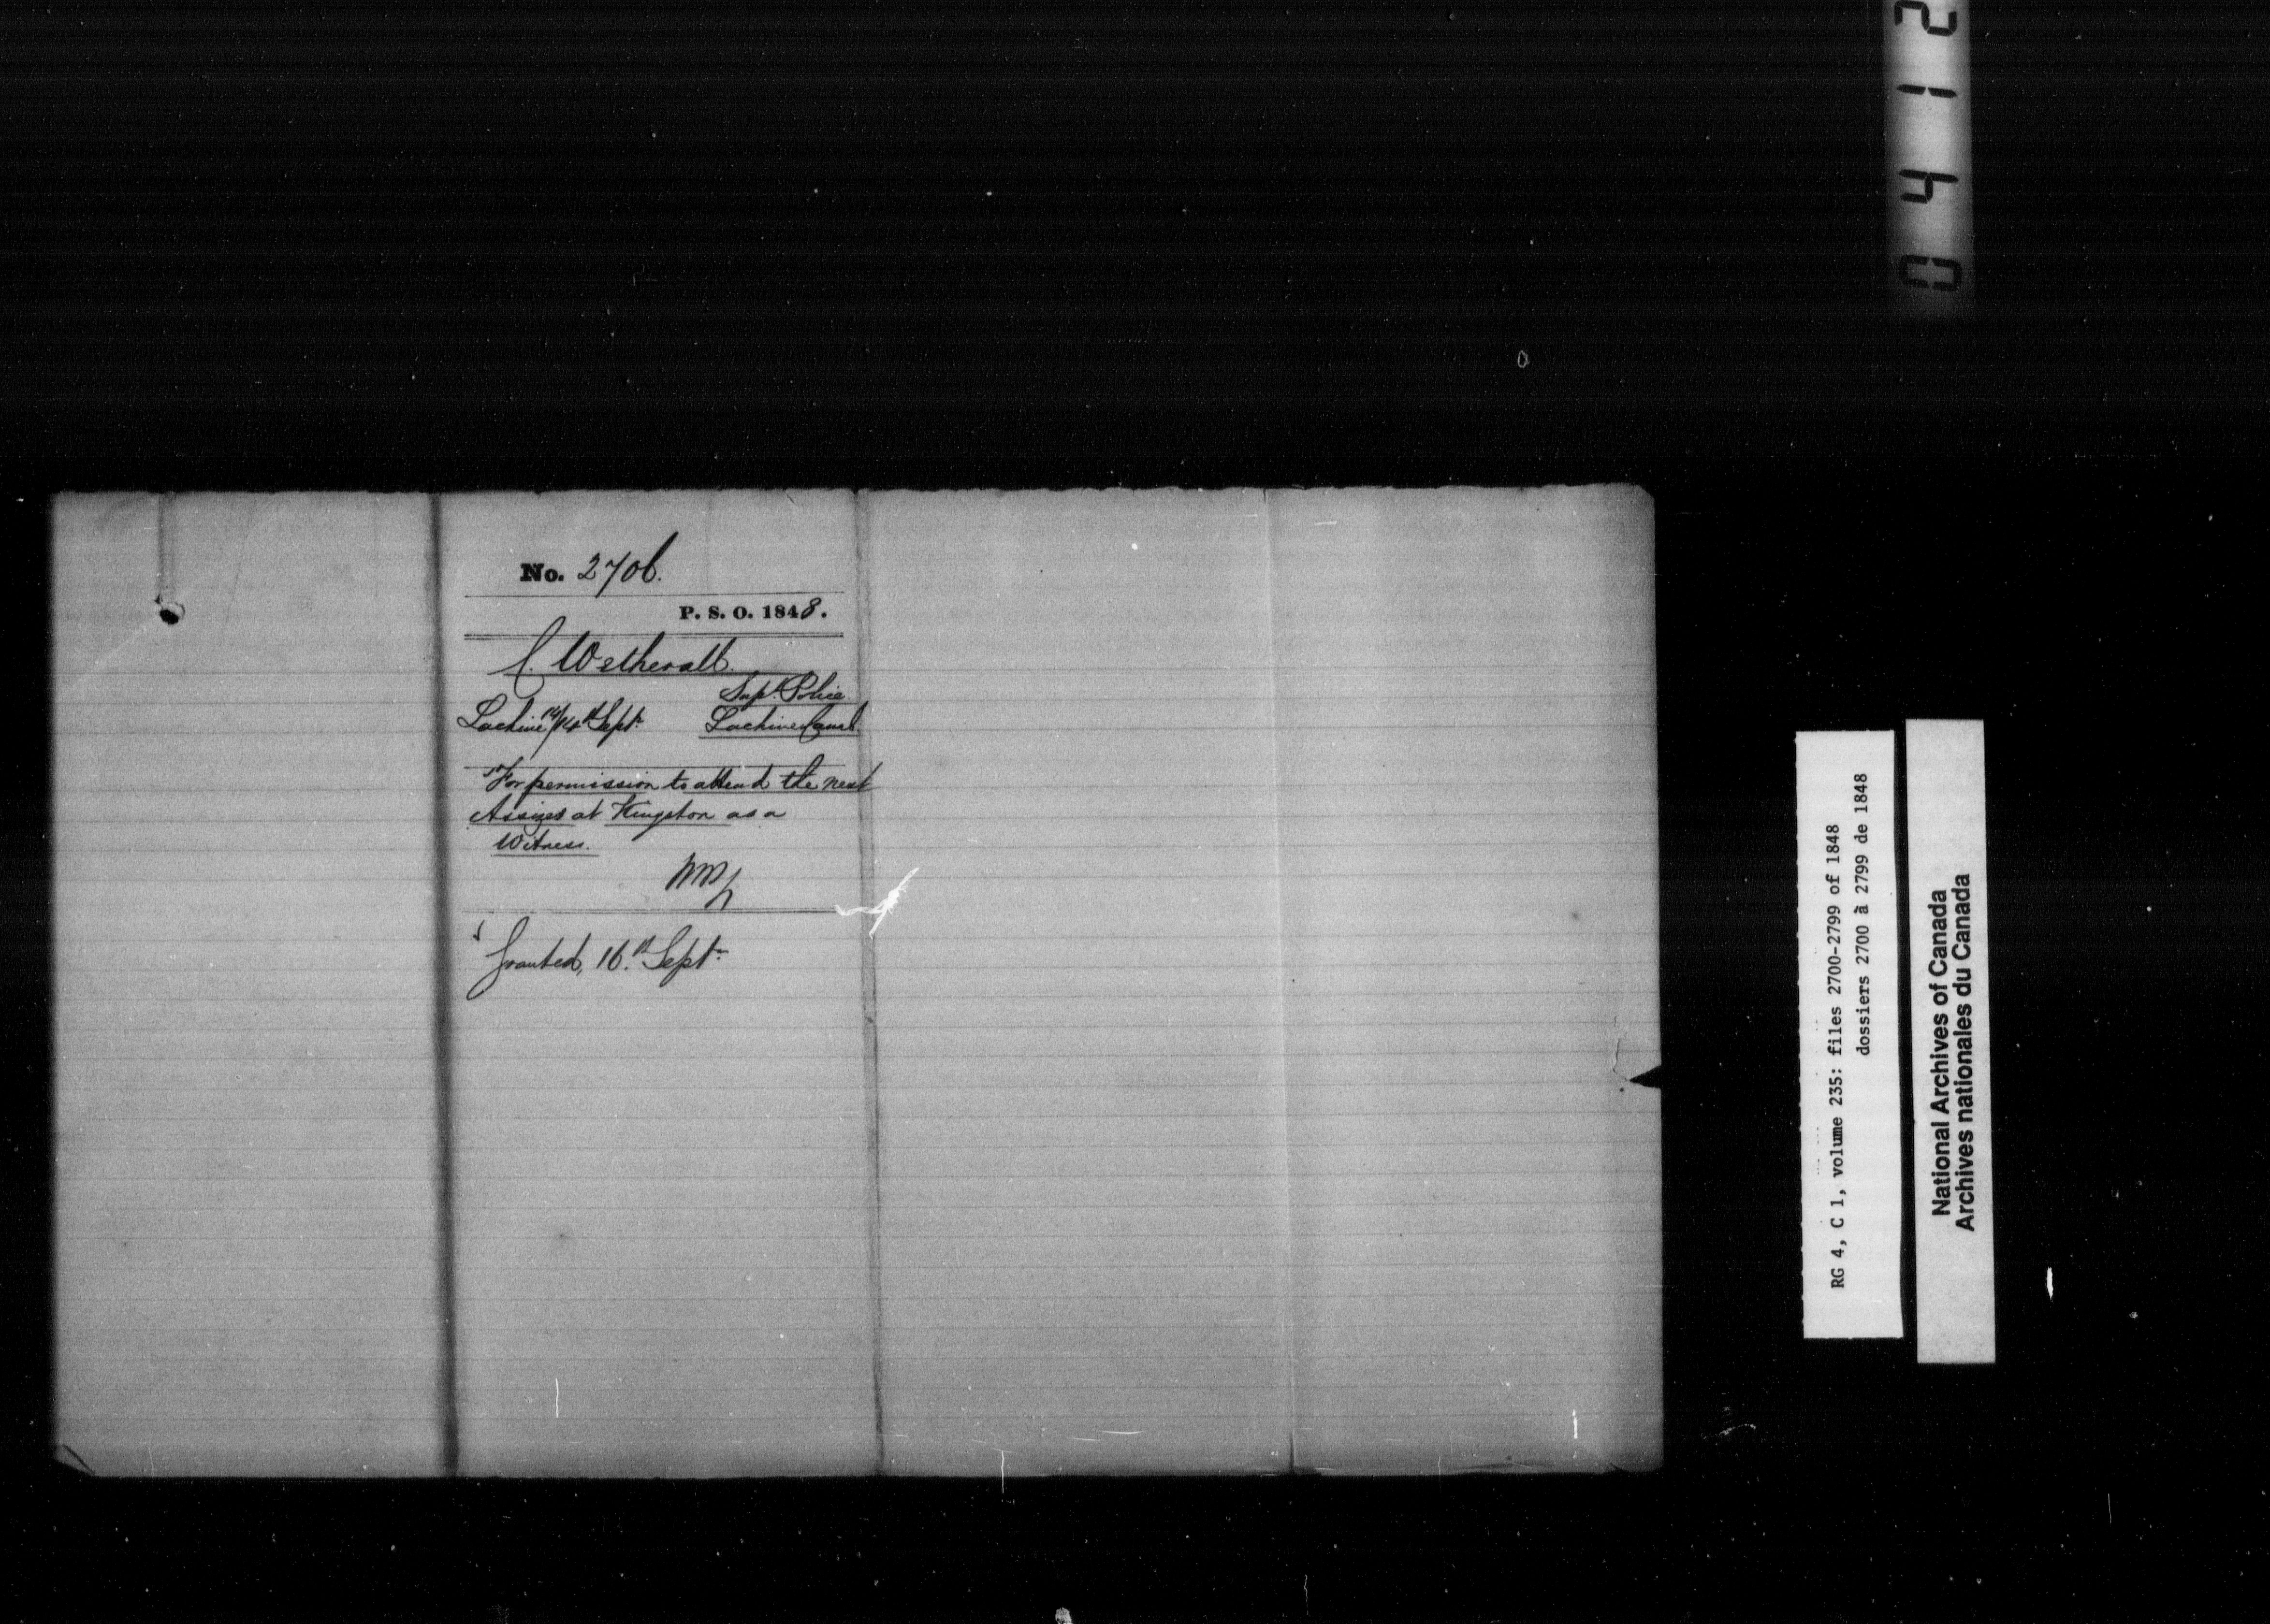 No. 2706.
P. S. O. 1848.
C. Wetherall.
Supt. Police
Lachine 14th Sept. Lachine Canal.
For permission to attend the next
Assizes at Kingston as a
Witness.
Granted, 16th Sept.
RG 4, C 1, volume 235: files 2700-2799 of 1848
dossiers 2700 à 2799 de 1848
National Archives of Canada
Archives nationales du Canada
0412